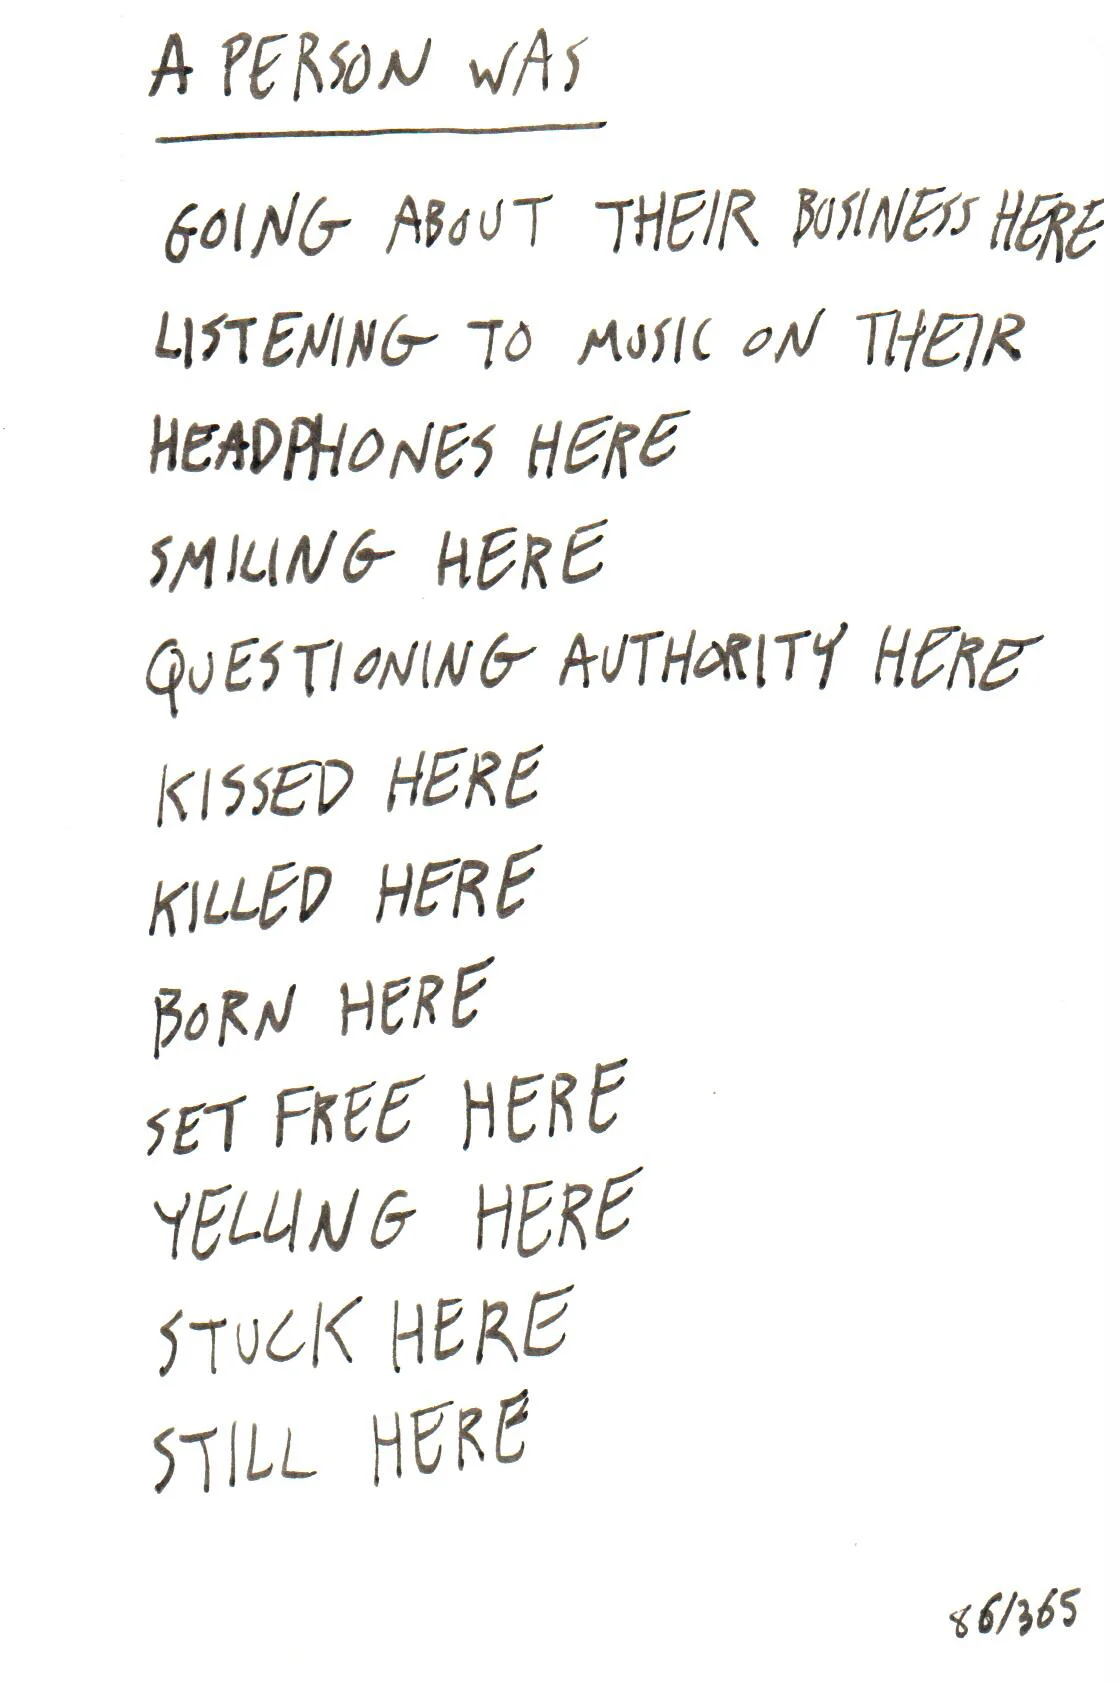 A PERSON WAS
GOING ABOUT THEIR BUSINESS HERE
LISTENING TO MUSIC ON THEIR
HEADPHONES HERE
SMILING HERE
QUESTIONING AUTHORITY HERE
KISSED HERE
KILLED HERE
BORN HERE
SET FREE HERE
YELLING HERE
STUCK HERE
STILL HERE
86/365